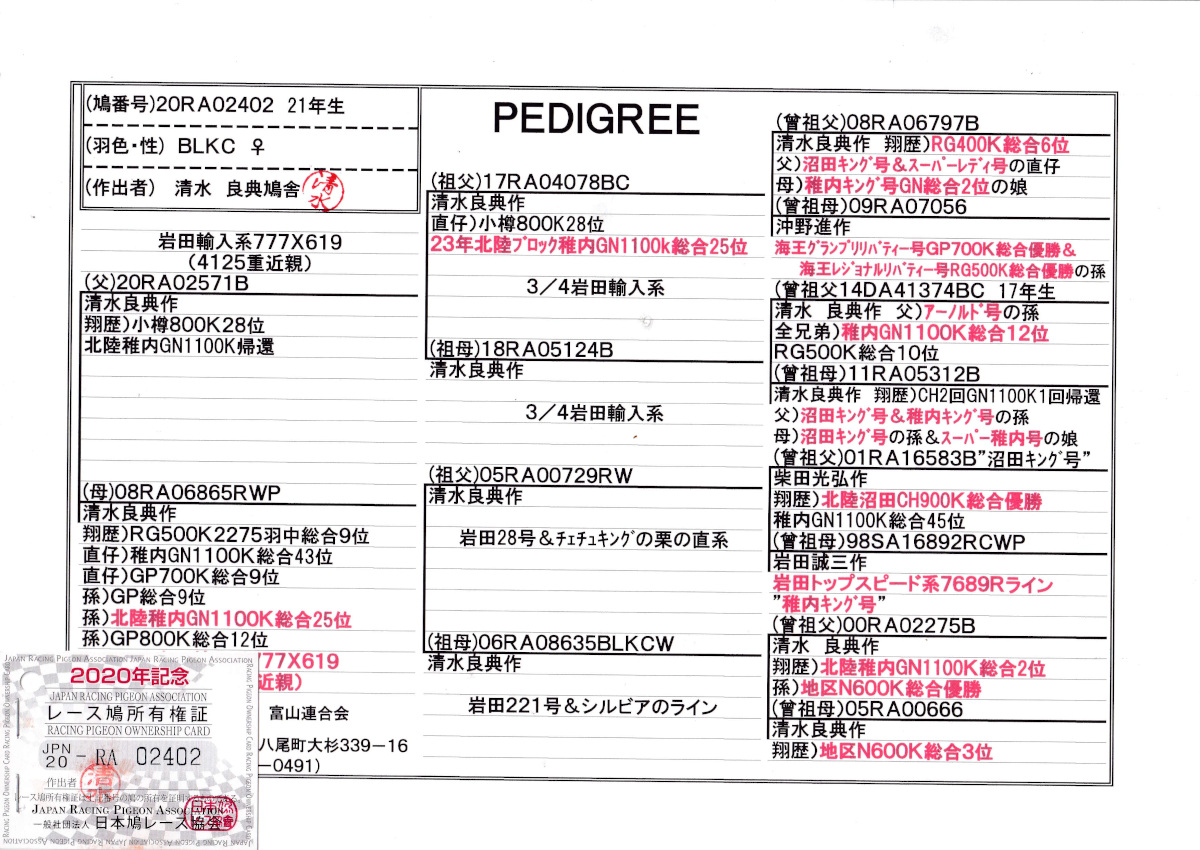 (鳩番号)20RA02402 21年生
(羽色・性) BLKC ♀
(作出者) 清水 良典鳩舎
清水
岩田輸入系777X619
(4125重近親)
(父)20RA02571B
清水良典作
翔歴)小樽800K28位
北陸稚内GN1100K帰還
(母)08RA06865RWP
清水良典作
翔歴)RG500K2275羽中総合9位
直仔)稚内GN1100K総合43位
直仔)GP700K総合9位
孫)GP総合9位
孫)北陸稚内GN1100K総合25位
孫)GP800K総合12位
777X619
近親)
富山連合会
八尾町大杉339-16
-0491)
PEDIGREE
(祖父)17RA04078BC
清水良典作
直仔)小樽800K28位
23年北陸ブロック稚内GN1100k総合25位
3/4岩田輸入系
(祖母)18RA05124B
清水良典作
3/4岩田輸入系
(祖父)05RA00729RW
清水良典作
岩田28号&チェチュキングの栗の直系
(祖母)06RA08635BLKCW
清水良典作
岩田221号&シルビアのライン
(曾祖父)08RA06797B
清水良典作 翔歴)RG400K総合6位
父)沼田キング号&スーパーレディ号の直仔
母)稚内キング号GN総合2位の娘
(曾祖母)09RA07056
沖野進作
海王グランプリリバティー号GP700K総合優勝&
海王レジョナルリバティー号RG500K総合優勝の孫
(曾祖父14DA41374BC 17年生
清水 良典作 父)アーノルド号の孫
全兄弟)稚内GN1100K総合12位
RG500K総合10位
(曾祖母)11RA05312B
清水良典作 翔歴)CH2回GN1100K1回帰還
父)沼田キング号&稚内キング号の孫
母)沼田キング号の孫&スーパー稚内号の娘
(曾祖父)01RA16583B"沼田キング号"
柴田光弘作
翔歴)北陸沼田CH900K総合優勝
稚内GN1100K総合45位
(曾祖母)98SA16892RCWP
岩田誠三作
岩田トップスピード系7689Rライン
"稚内キング号"
(曾祖父)00RA02275B
清水 良典作
翔歴)北陸稚内GN1100K総合2位
孫)地区N600K総合優勝
(曾祖母)05RA00666
清水良典作
翔歴)地区N600K総合3位
JAPAN RACING PIGEON ASSOCIATION JAPAN RACING PIGEON ASSOCIATION
2020年記念
JAPAN RACING PIGEON ASSOCIATION
レース鳩所有権証
RACING PIGEON OWNERSHIP CARD
JPN
20 - RA 02402
作出者
清水
JAPAN RACING PIGEON ASSOCIATION
一般社団法人 日本鳩レース協会